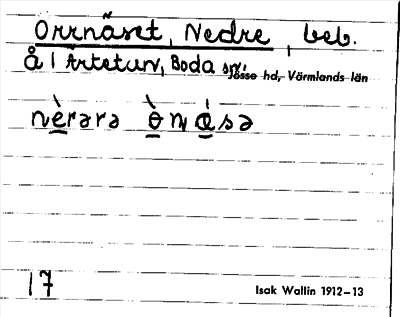 Orrnäset, Nedre, beb.
Å 1 Ärtetun, Boda sn,
Jösse hd, Värmlands län
nè̱rərə ò̱rn á̱sə
17
Isak Wallin 1912–13